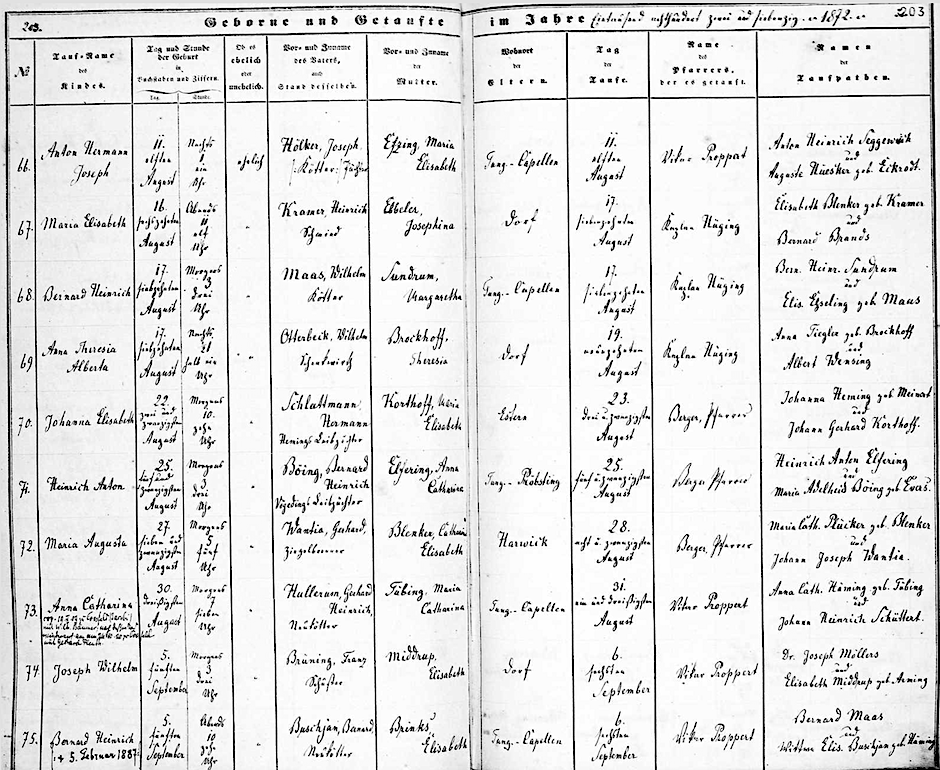 203.
Geborne und Getaufte
im Jahre Eintausend achthundert zwei und siebenzig. 1872.
203
№
Tauf-Name
des
Kindes.
Tag und Stunde
der Geburt
in
Buchstaben und Ziffern.
Tag.
Stunde.
Ob es
ehelich
oder
unehelich.
Vor- und Zuname
des Vaters,
auch
Stand desselben.
Vor- und Zuname
der
Mutter.
Wohnort
der
Eltern.
Tag
der
Taufe.
Name
des
Pfarrers,
der es getauft.
Namen
der
Taufpathen.
66.
Anton Hermann
Joseph
11.
elften
August
Nachts
1
ein
Uhr
ehelich
Hölker, Joseph
Kötter
Maria
Elisabeth
Tung.-Capellen
11.
elften
August
Vikar Proppert
Anton Heinrich Seggewick
und
Auguste Huesker geb. Eckrodt.
67.
Maria Elisabeth
16.
sechszehnten
August
Abends
elf
Uhr
"
Kramer Heinrich
Schmied
Ebbeler,
Josephina
Dorf
17.
siebenzehnten
August
Kaplan Hüging
Elisabeth Blenker geb Kramer
und
Bernard Brands
68.
Bernard Heinrich
17.
siebzehnten
August
Morgens
3
drei
Uhr
"
Maas, Wilhelm
Kötter
Sundrum,
Margaretha
Tung.-Capellen
17.
siebenzehnten
August
Kaplan Hüging
Bern. Heinr. Sundrum
und
Elis. geb Maas
69
Anna Theresia
Alberta
17.
siebzehnten
August
Nachts
halb ein
Uhr
"
Otterbeck, Wilhelm
Schenkwirth
Brockhoff,
Theresia
Dorf
19.
neunzehnten
August
Kaplan Hüging
Anna Tiegler geb. Brockhoff
und
Albert Wensing
70.
Johanna Elisabeth
22.
zwei und
zwanzigsten
August
Morgens
10.
zehn
Uhr
"
Schlattmann,
Hermann
Hemings Leibzüchter
Korthoff, Maria
Elisabeth
Estern
23.
drei u. zwanzigsten
August
Berger, Pfarrer
Johanna Heming geb Meinert
und
Johann Gerhard Korthoff.
71.
Heinrich Anton
25.
fünf und
zwanzigsten
August
Morgens
3
drei
Uhr
"
Böing, Bernard
Heinrich
Leibzüchter
Elfering, Anna
Catharina
Tung.-Röbsting
25.
fünf u. zwanzigsten
August
Berger, Pfarrer
Heinrich Anton Elfering
und
Maria Adelheid Böing geb Evers.
72.
Maria Augusta
27.
sieben und
zwanzigsten
August
Morgens
5
fünf
Uhr
"
Wantia, Gerhard,
Ziegelbrenner
Blenker, Cathar.
Elisabeth
Harwick
28.
acht u. zwanzigsten
August
Berger, Pfarrer
Maria Cath. Plücker geb. Blenker
und
Johann Joseph Wantia.
73.
Anna Catharina
30.
dreißigsten
August
Morgens
7
sieben
Uhr
"
Hullerum, Gerhard
Heinrich,
Neukötter
Tübing, Maria
Catharina
Tung.-Capellen
31.
ein und dreißigsten
August
Vikar Proppert
Anna Cath. Häming geb. Tübing
und
Johann Heinrich Schüttert.
74.
Joseph Wilhelm
5.
fünften
September
Morgens
3
drei
Uhr
"
Brüning, Franz
Schuster
Middrup,
Elisabeth
Dorf
6.
sechsten
September
Vikar Proppert
Dr. Joseph Möllers
und
Elisabeth Middrup geb.
75.
Bernard Heinrich
+ 5. Februar 1887.
5.
fünften
September
Abends
10
zehn
Uhr
"
Buschjan, Bernard,
Neukötter
Brinks,
Elisabeth
Tung.-Capellen
6.
sechsten
September
Vikar Proppert
Bernard Maas
und
Wittwe Elis. Buschjan geb. Häming